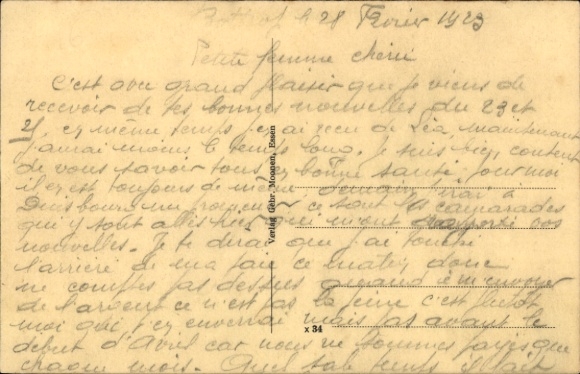 le 28 Février 1923
Petite femme chérie
C'est avec grand plaisir que je viens de
recevoir de tes bonnes nouvelles du 23 et
25, en même temps j'ai reçu de Léa, maintenant
j'aurai moins le temps long. Je suis bien content
de vous savoir tous en bonne santé, pour moi
il en est toujours de même, demain j'irai à
Duisbourg ce sont les camarades
qui y sont allés hier qui m'ont rapporté vos
nouvelles. Je te dirai que j'ai touché
l'arriéré de ma ce matin donc
ne comptes pas dessus quand à m'envoyer
de l'argent ce n'est pas la peine c'est plutôt
moi qui t'en enverrai mais pas avant le
début d'Avril car nous ne sommes payés que
chaque mois. Quel sale temps il fait
Verlag Gebr. Moonen, Essen
x 34